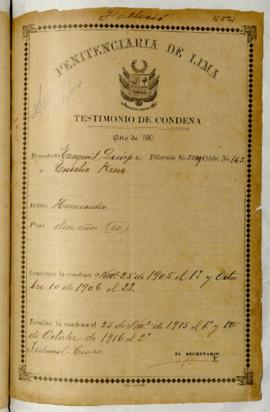 Falleció
PENITENCIARIA DE LIMA
TESTIMONIO DE CONDENA
Año de 190
Rematado Ezequiel Quispe Filiación No. Celda No. 163
o Eusebio
Delito Homicidio
Pena diez años (10)
Comienza la condena Nov. 25 de 1905 el 1º y Octubre
10 de 1906 el 2º
Termina la condena el 25 de Nov. de 1915 el 1º y 10
de Octubre de 1916 el 2º
Tribunal Cuzco
EL SECRETARIO